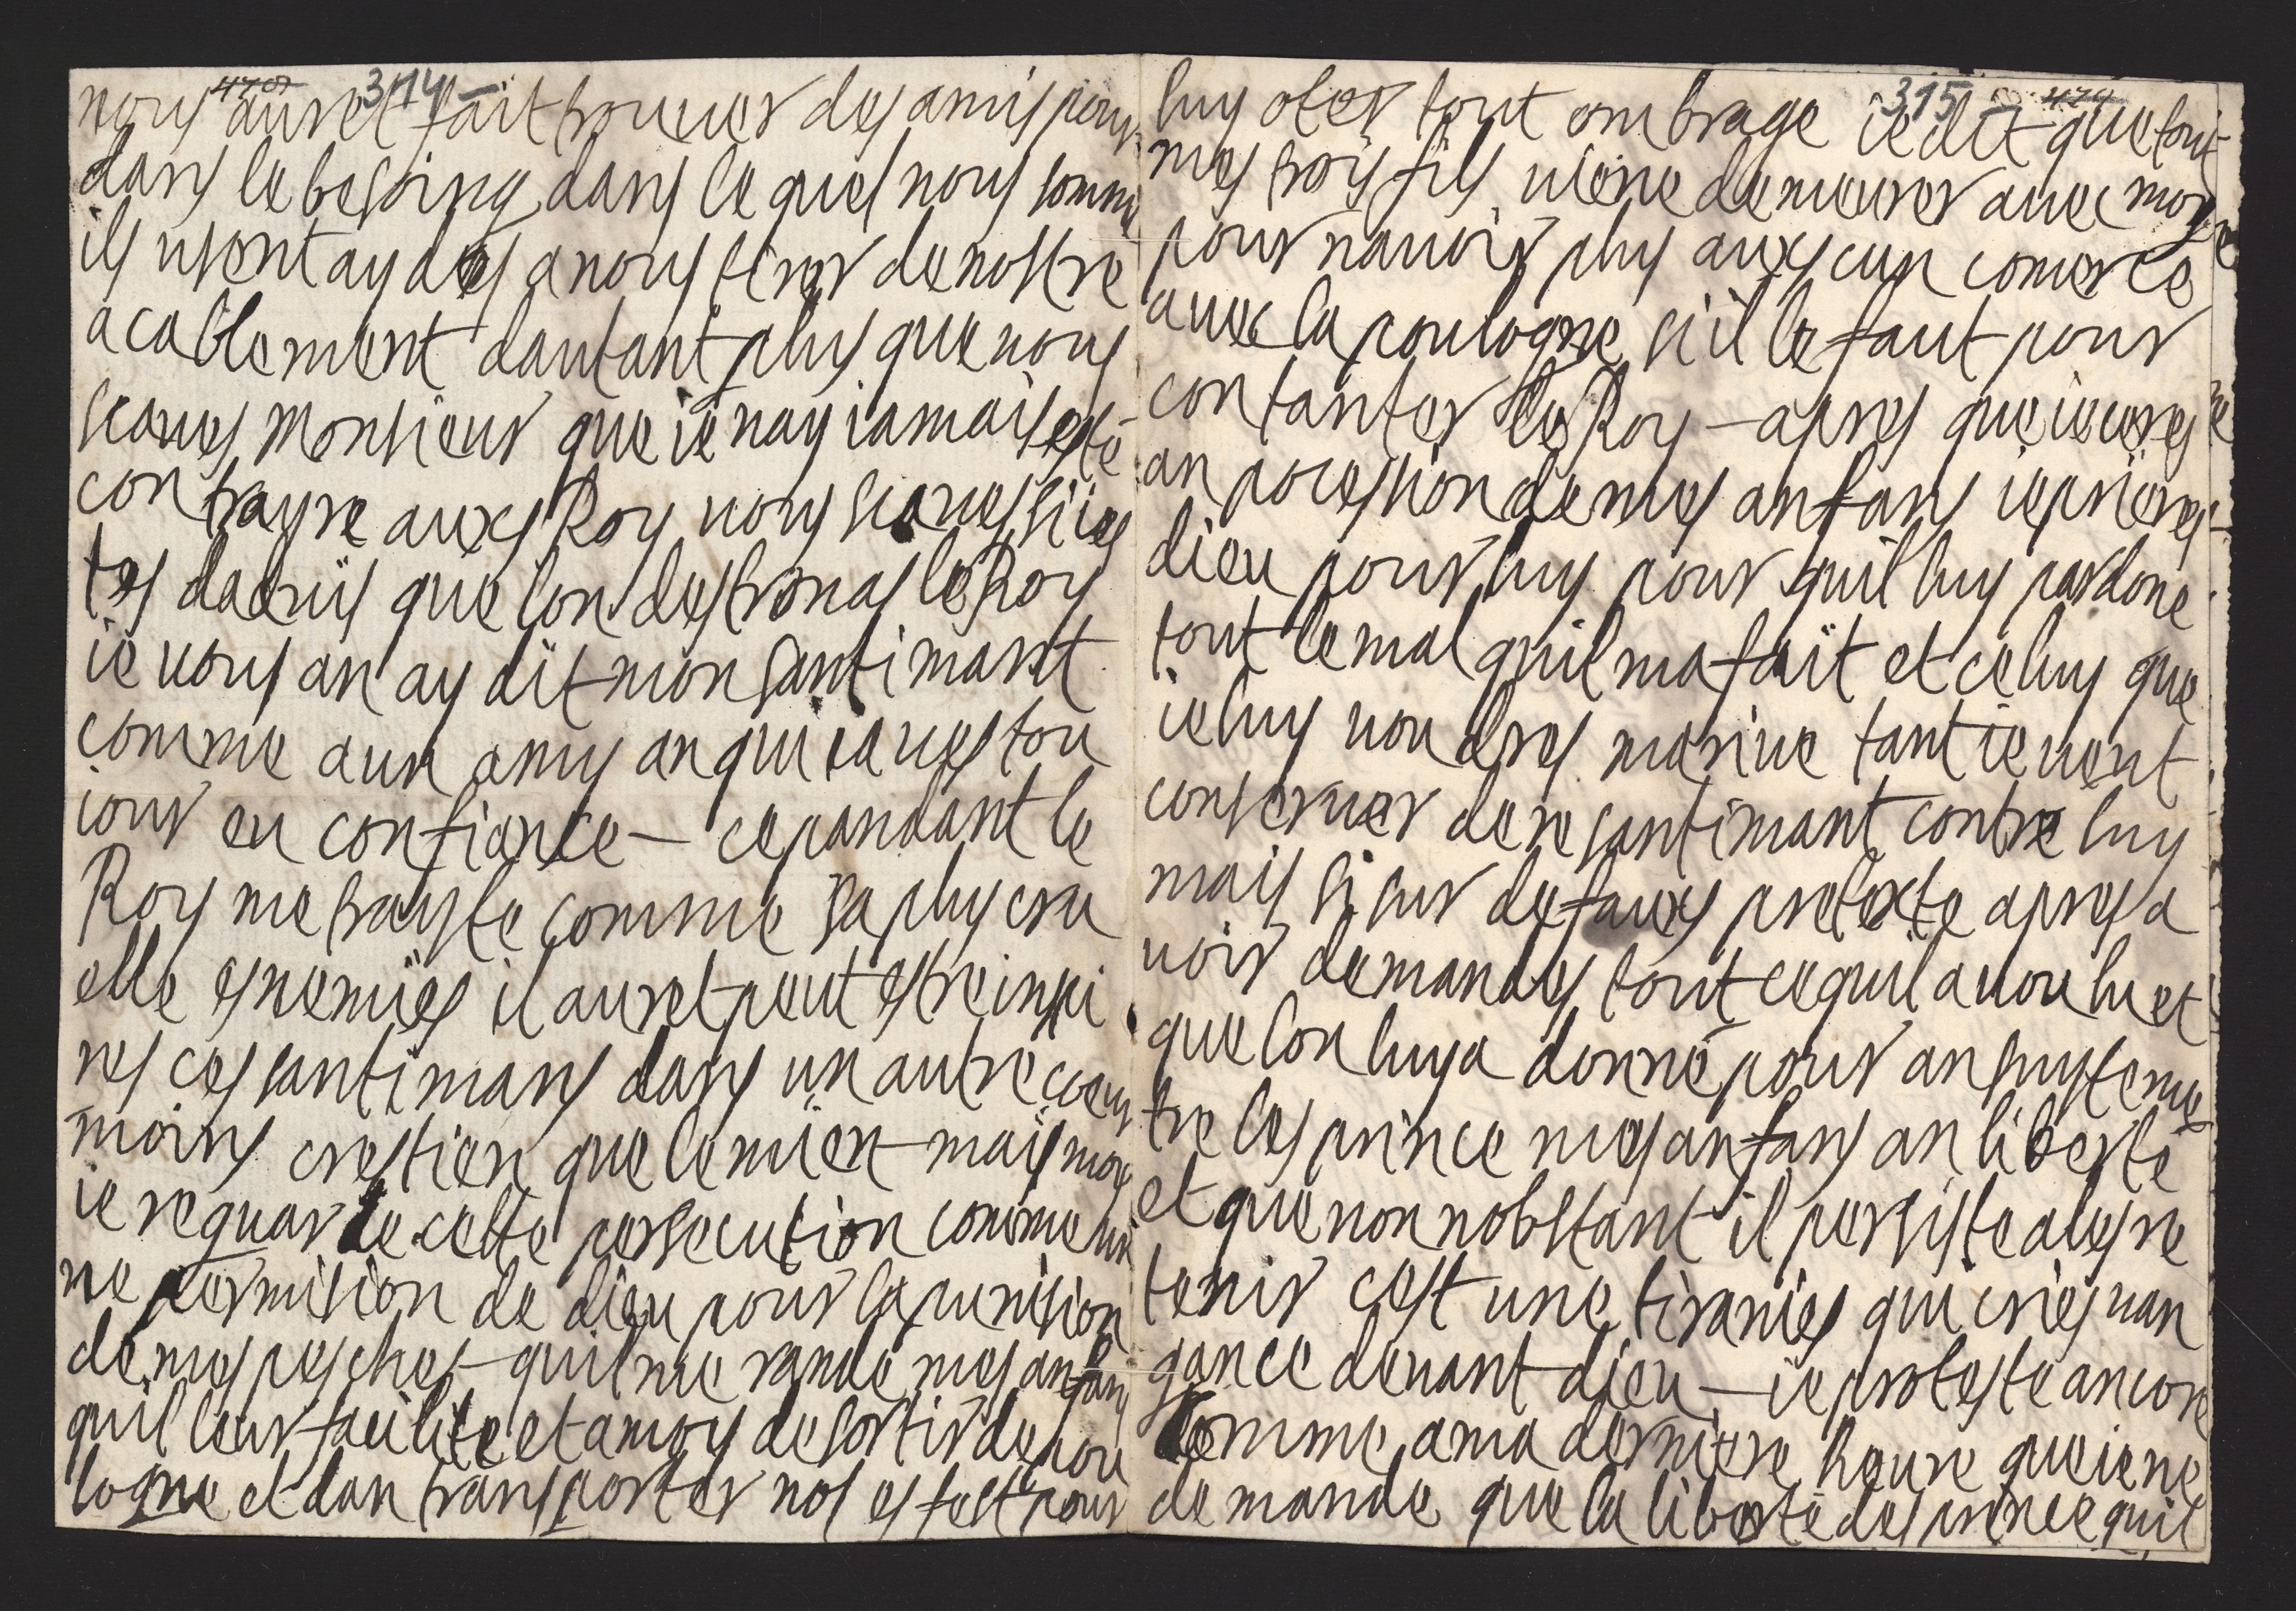 470 314 -
nous auret fait trouver des amis pour
dans le besoing dans le quel nous somme
ils usent aydes a nous tirer de nostre
acablement dautant plus que vous
scaves Monsieur que ie nay iamais esté
contrayre auxs Roy vous scaves si ies
tes que lon destronas le Roy
ie vous an ay dit mon santimant
comme a un amy an qui iaves tou
iour eu confiance – cepandant le
Roy me trayste comme sa plus cru
elle esnemiës il auret peut estre inspi
res ces santimans dans un autre coeur
moins crestien que le mien mais moy
ie reguarde cette persecution comme un
ne permision de dieu pour la punision
de mes pesches quil me rande mes anfans
quil leur facilite et a moy de sortir de pou
logne et dan transporter nos esfest pour
315 - 479
luy oter tout ombrage ie dit que tout
mes trois fils viene demeurer avec moy
pour navoir plus auxscun comerce
avec la poulogne sil le faut pour
contanter le Roy – apres que ieures
an pocession de mes anfans ie prieres
dieu pour luy pour quil luy pardone
tout le mal quil ma fait et celuy que
ie luy voudres
conserver de resantimant contre luy
mais si sur de fauxs pretexte apres a
voir demandes tout ce quil a voulu et
que lon luy a donné pour ansuyste met
tre les prince mes anfans an liberté
et que non nobstant il persiste a les re
tenir cest une tiranies qui cries van
gance devant dieu – ie proteste ancore
comme a ma derniere heure que ie ne
demande que la liberté des prince quil